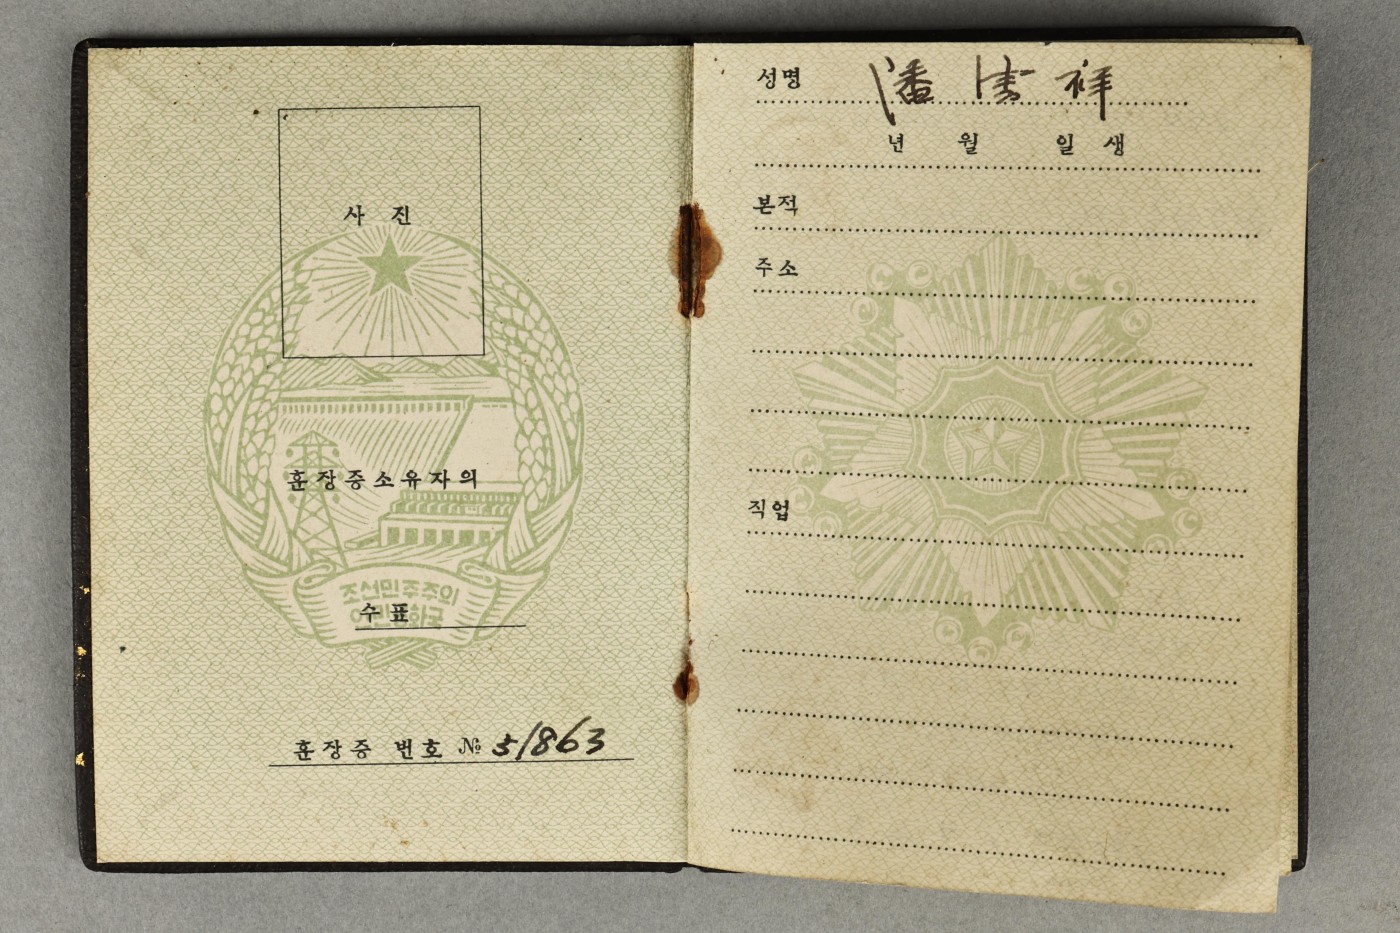 사진
훈장증소유자의
조선민주주의
인민공화국
수표
훈장증 번호 № 51863
성명 潘清祥
년 월 일 생
본적
주소
직업